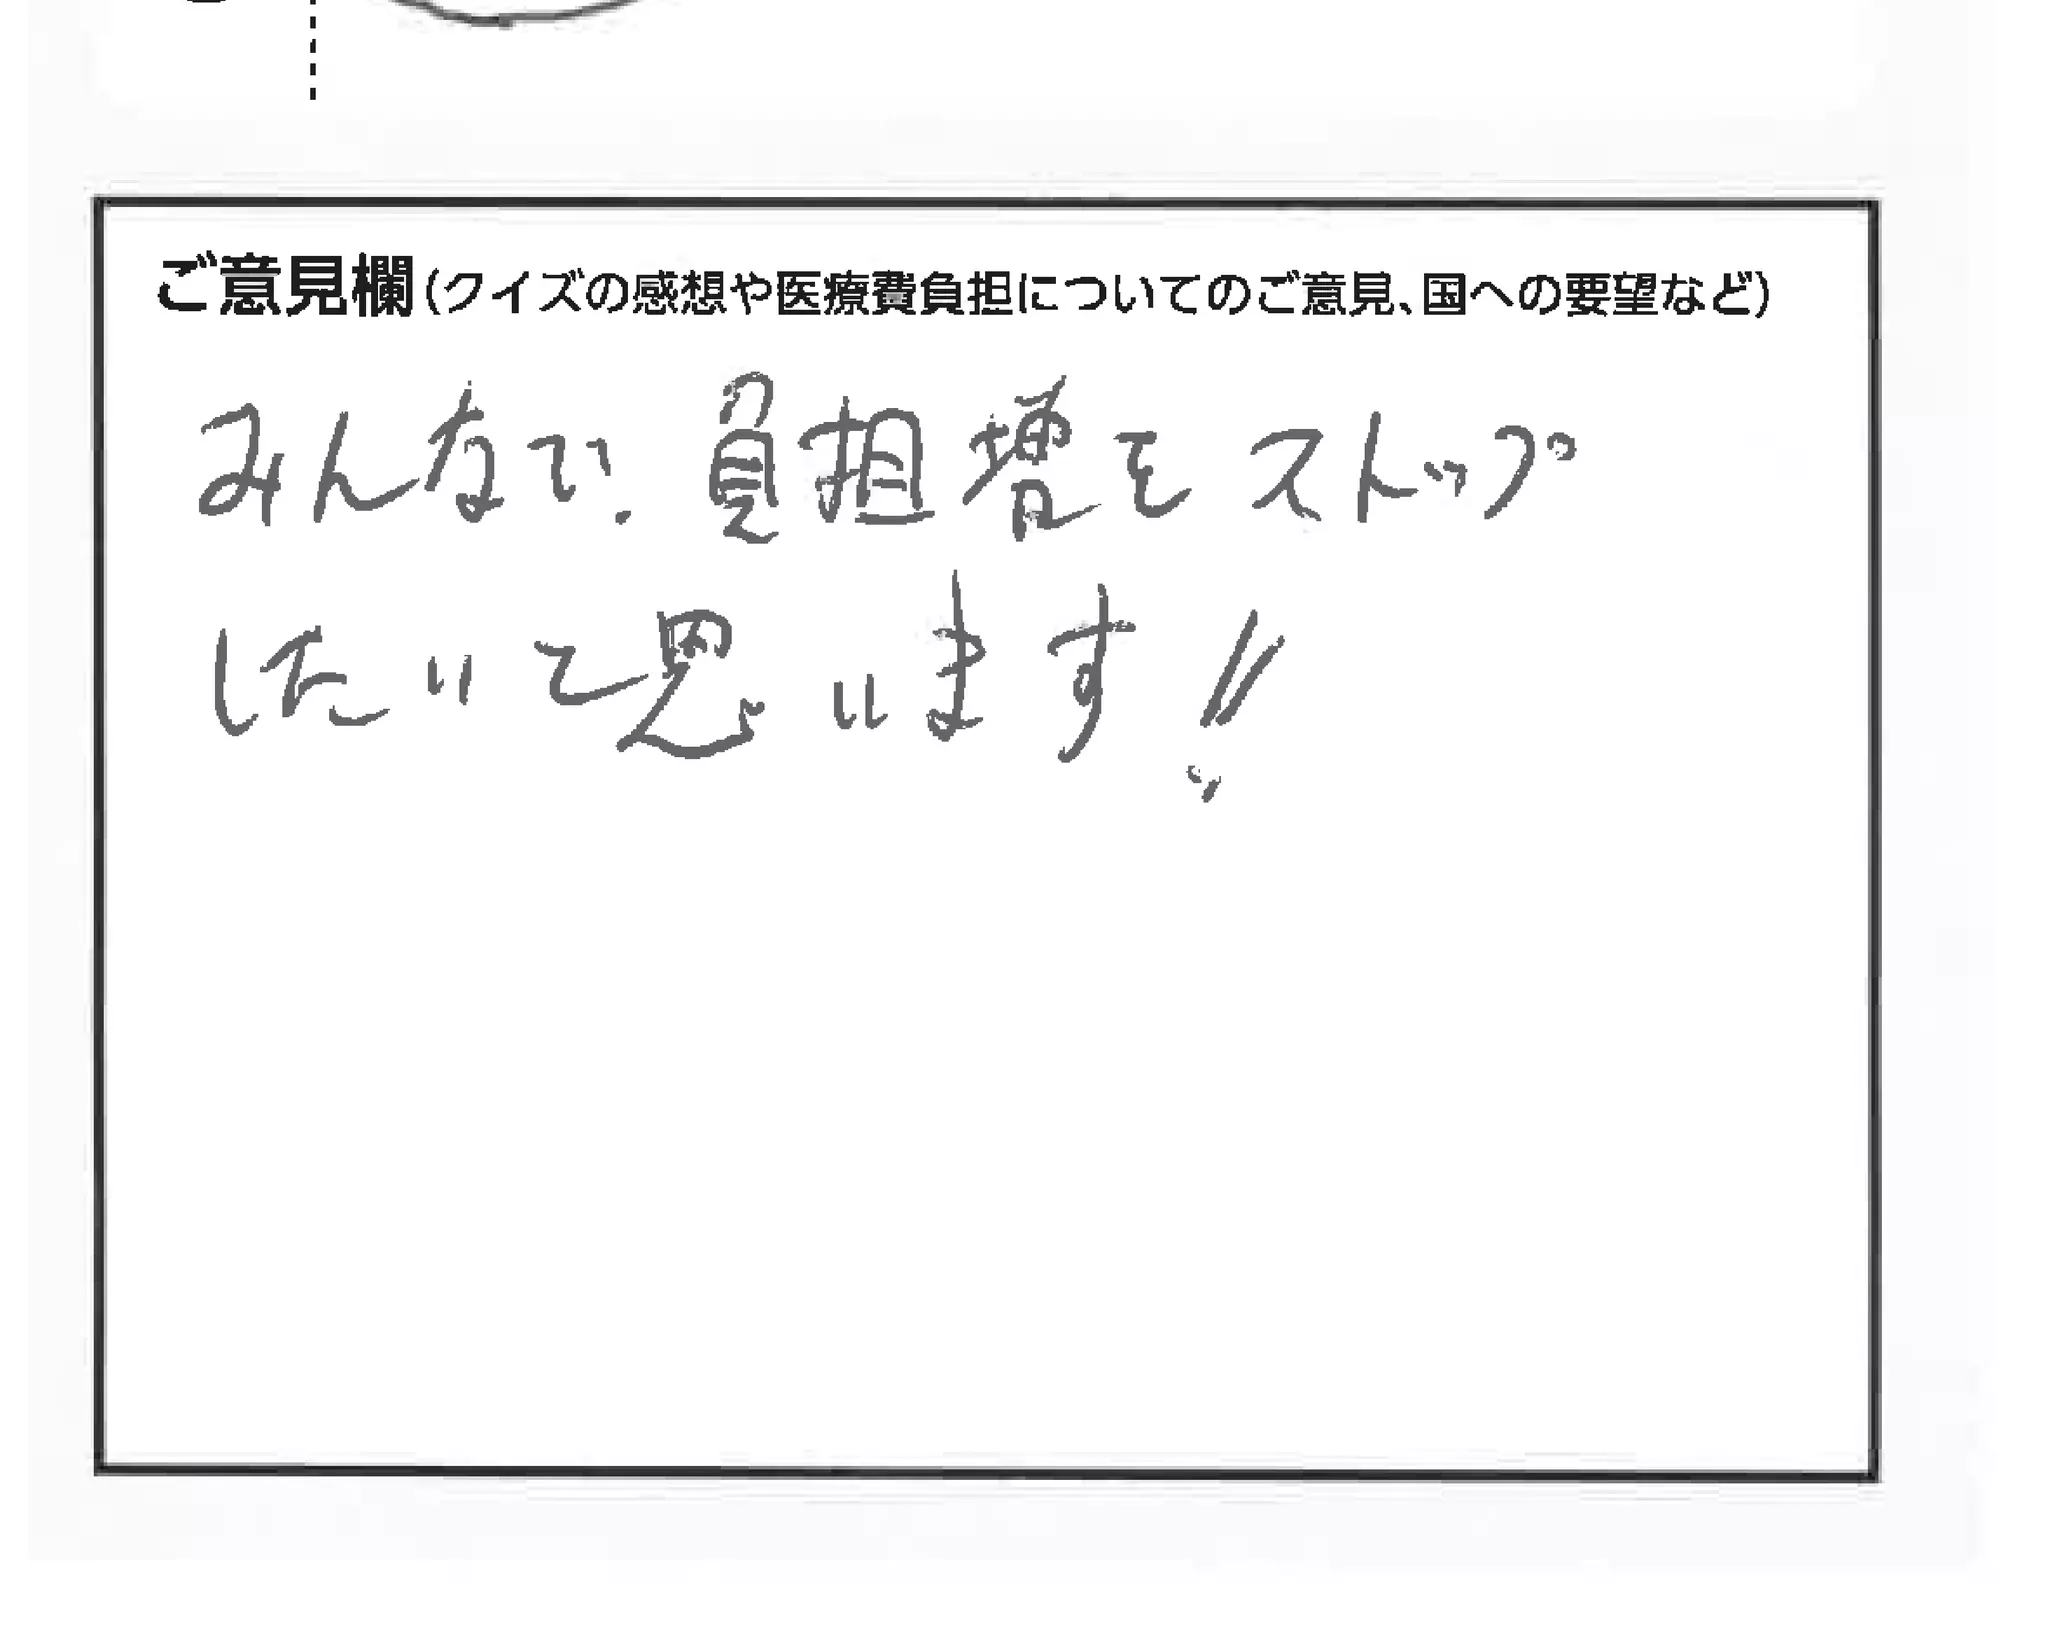 ご意見欄(クイズの感想や医療費負担についてのご意見、国への要望など)
みんなで、負担増をストップ
したいと思います!!